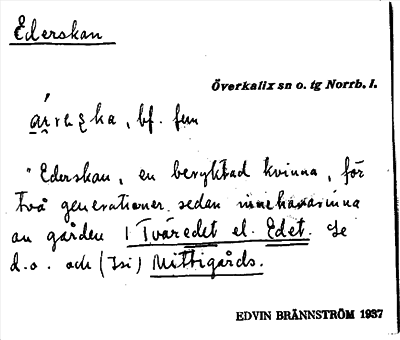 Ederskan
Överkalix sn o. tg Norrb. l.
bf. fem
"Ederskan, en beryktad kvinna, för
två generationer sedan innehavarinna
av gården 1 Tväredet el. Edet. Se
d.o. och (Isi) Mittigårds.
EDVIN BRÄNNSTRÖM 1937